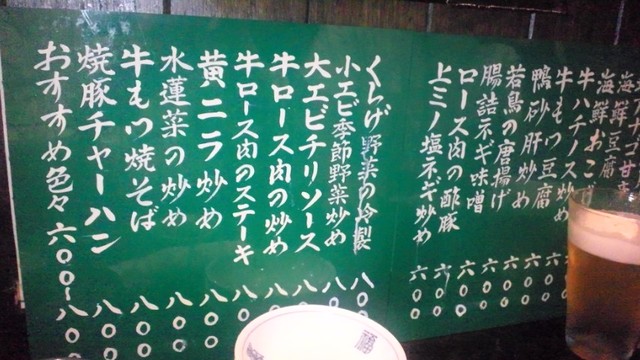 海鮮豆腐
海鮮おこげ
牛ハチノス炒め
牛もつ豆腐
鴨砂肝炒め
若鳥の唐揚げ 六〇〇
腸詰ネギ味噌 六〇〇
ロース肉の酢豚 六〇〇
上ミノ塩ネギ炒め 六〇〇
くらげ野菜の冷製 八〇〇
小エビ季節野菜炒め 八〇〇
大エビチリソース 八〇〇
牛ロース肉の炒め 八〇〇
牛ロース肉のステーキ 八〇〇
黄ニラ炒め 八〇〇
水蓮菜の炒め 八〇〇
牛もつ焼そば 八〇〇
焼豚チャーハン 八〇〇
おすすめ色々 六〇〇〜八〇〇